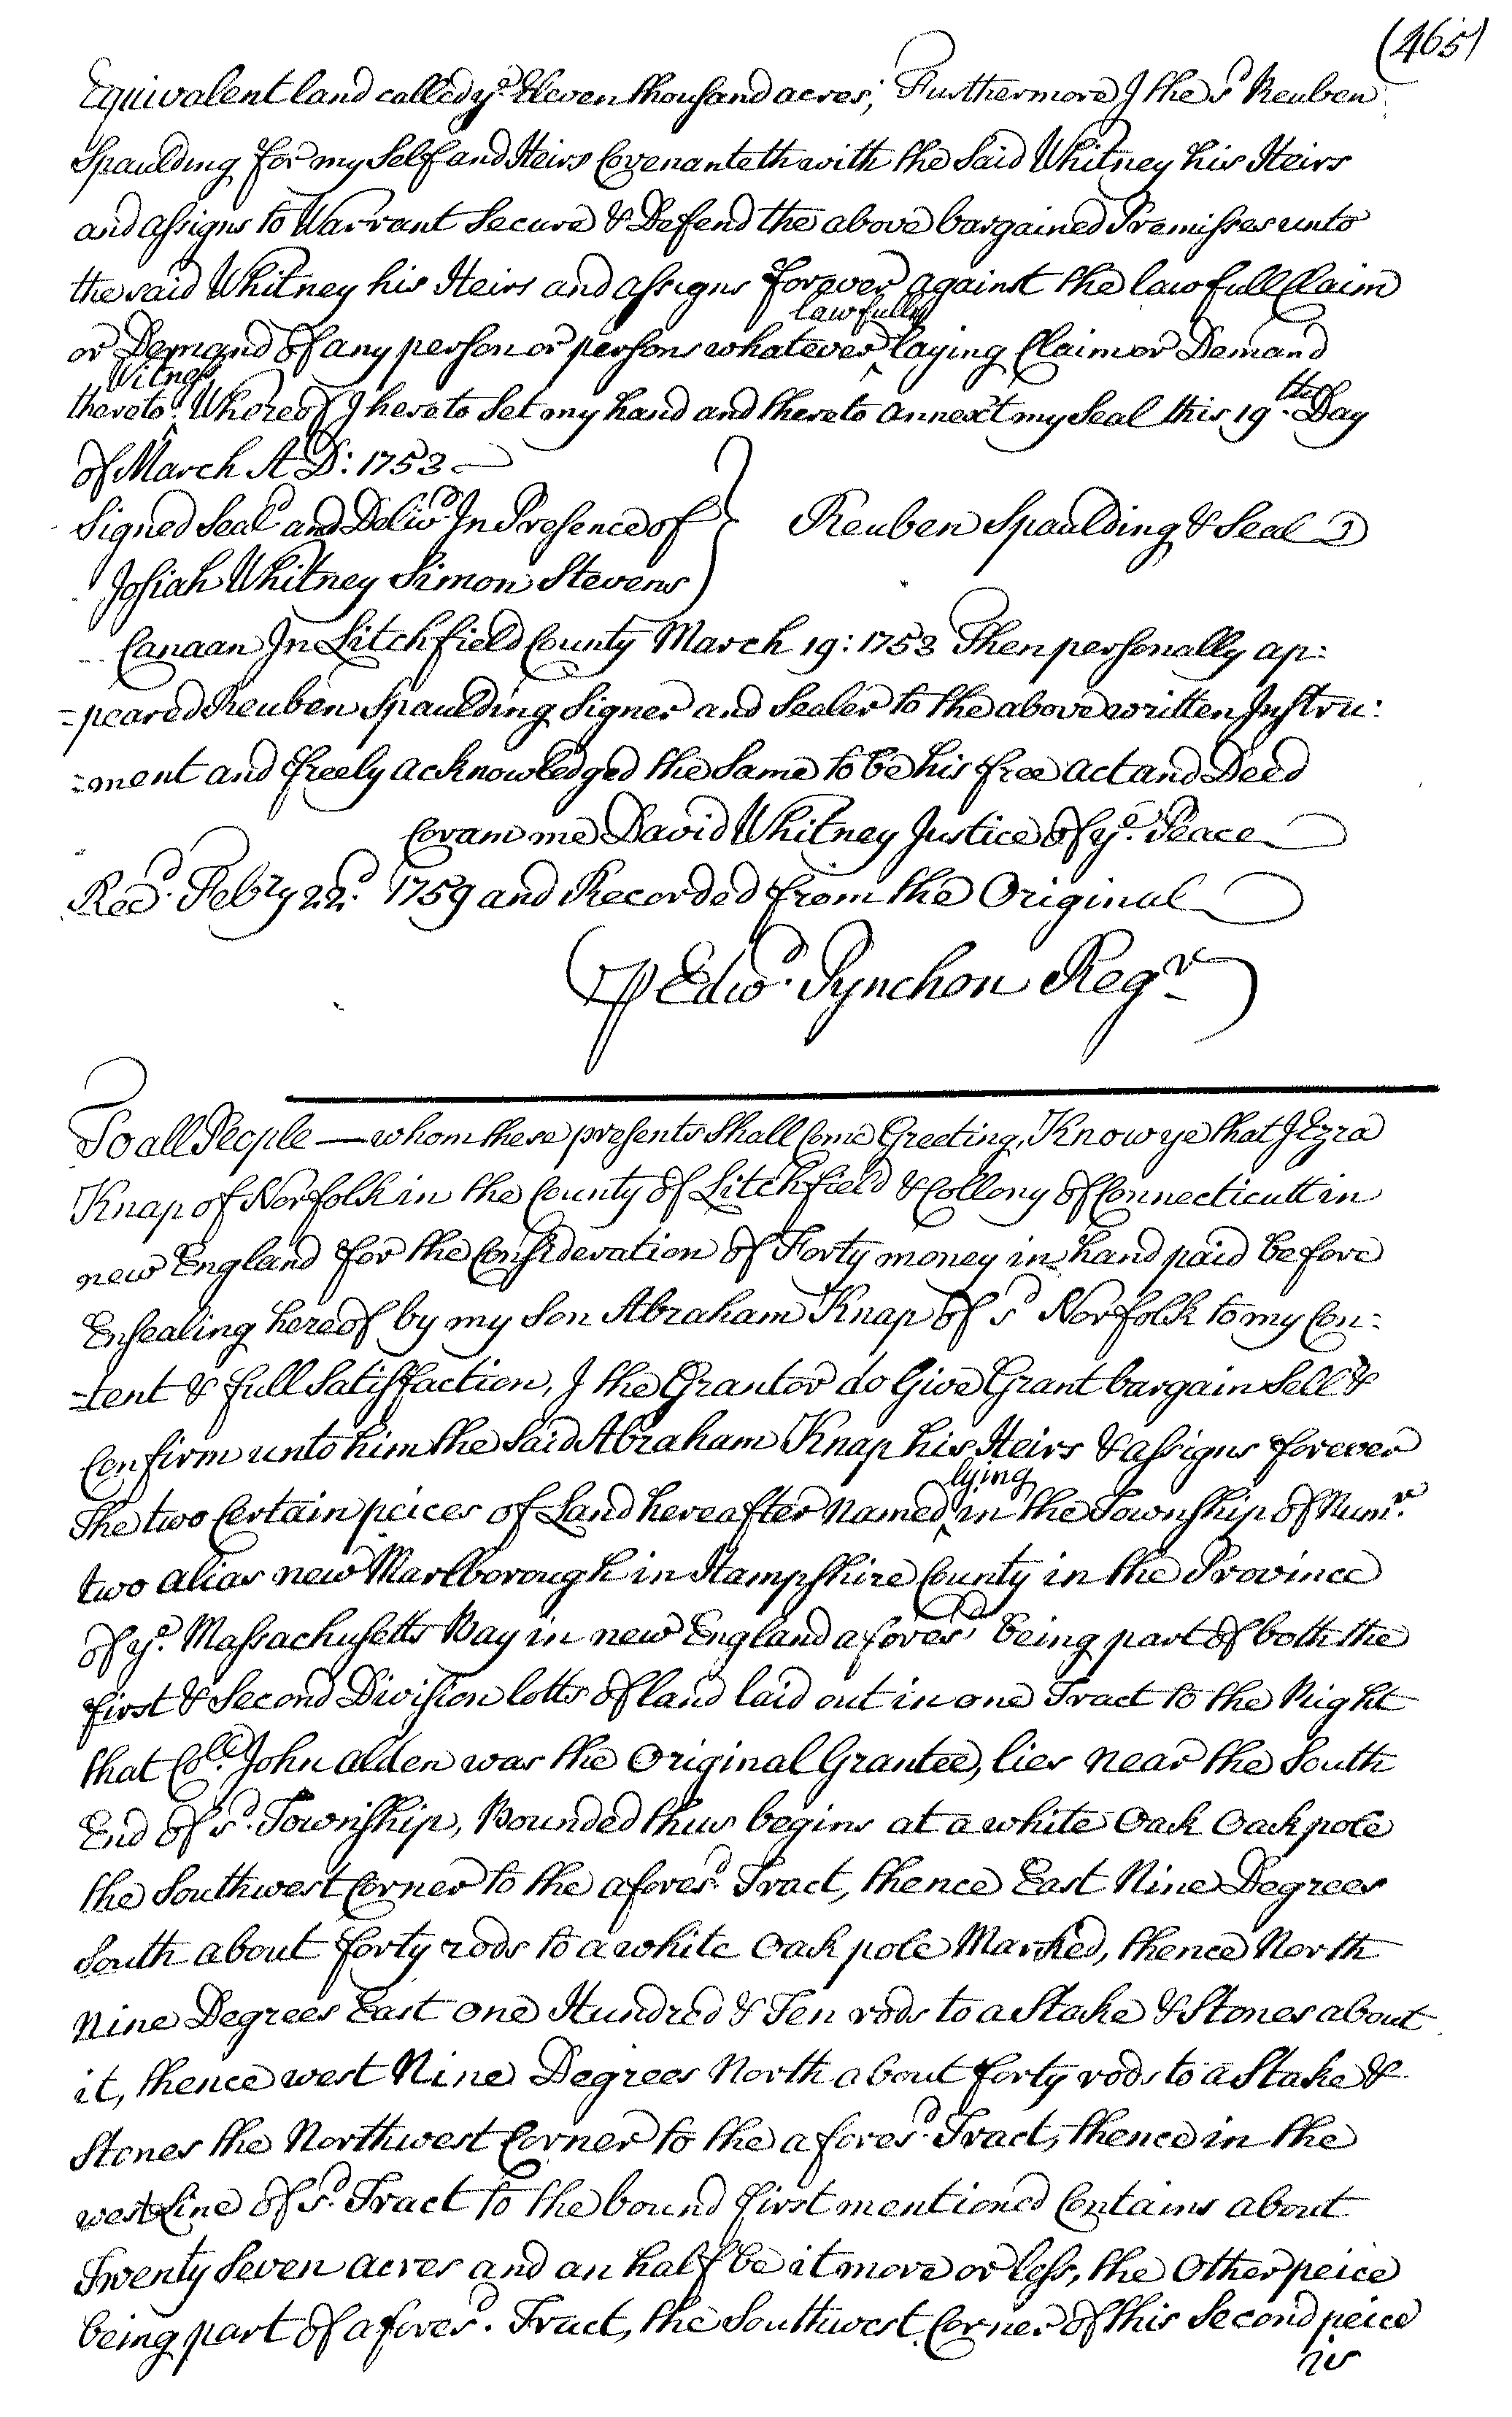 (465)
Equivalent land called ye. Eleven thousand acres, Furthermore I the sd Reuben
Spaulding for my Self and Heirs Covenanteth with the Said Whitney his Heirs
and assigns to Warrant Secure & Defend the above bargained Premisses unto
the said Whitney his Heirs and assigns forever against the lawfull Claim
lawfully
or Demand of any person or persons whatever ‸ laying Claim or Demand
Witness
thereto. ‸ Whereof I hereto Set my hand and thereto annext my Seal this 19th. Day
of March A D: 1753
Signed Seald and Delivd. In Presence of } Reuben Spaulding & Seal
Josiah Whitney Simon Stevens
Canaan In Litchfield County March 19: 1753 Then personally ap:
=peared Reuben Spaulding Signer and Sealer to the above written Instru:
=ment and freely acknowledged the Same to be his free act and Deed
Coram me David Whitney Justice of ye. Peace
Recd. Febry 22d. 1759 and Recorded from the Original
℔ Edwd. Pynchon Regr
To all People — whom these presents Shall Come Greeting, Know ye that I Ezra
Knap of Norfolk in the County of Litchfield & Collony of Connecticutt in
new England for the Consideration of Forty money in hand paid before
Ensealing hereof by my Son Abraham Knap of sd Norfolk to my Con:
=tent & full Satisfaction, I the Grantor do Give Grant bargain Sell &
Confirm unto him the Said Abraham Knap his Heirs & assigns forever
lying
The two Certain peices of Land hereafter Named ‸ in the Township of Numr.
two alias new Marlborough in Hampshire County in the Province
of ye. Massachusetts Bay in new England aforesd being part of both the
first & Second Division lotts of land laid out in one Tract to the Right
that Colo. John alden was the Original Grantee, lies near the South
End of sd. Township, Bounded thus begins at a white Oak Oak pole
the Southwest Corner to the aforesd. Tract, thence East Nine Degrees
South about forty rods to a white Oak pole Marked, thence North
Nine Degrees East one Hundred & Ten rods to a Stake & Stones about
it, thence west Nine Degrees North about forty rods to a Stake &
Stones the Northwest Corner to the aforesd. Tract, thence in the
west Line of sd. Tract to the bound first mentioned Contains about
Twenty Seven acres and an half be it more or less, the Other peice
being part of aforesd. Tract, the Southwest Corner of this Second peice
is